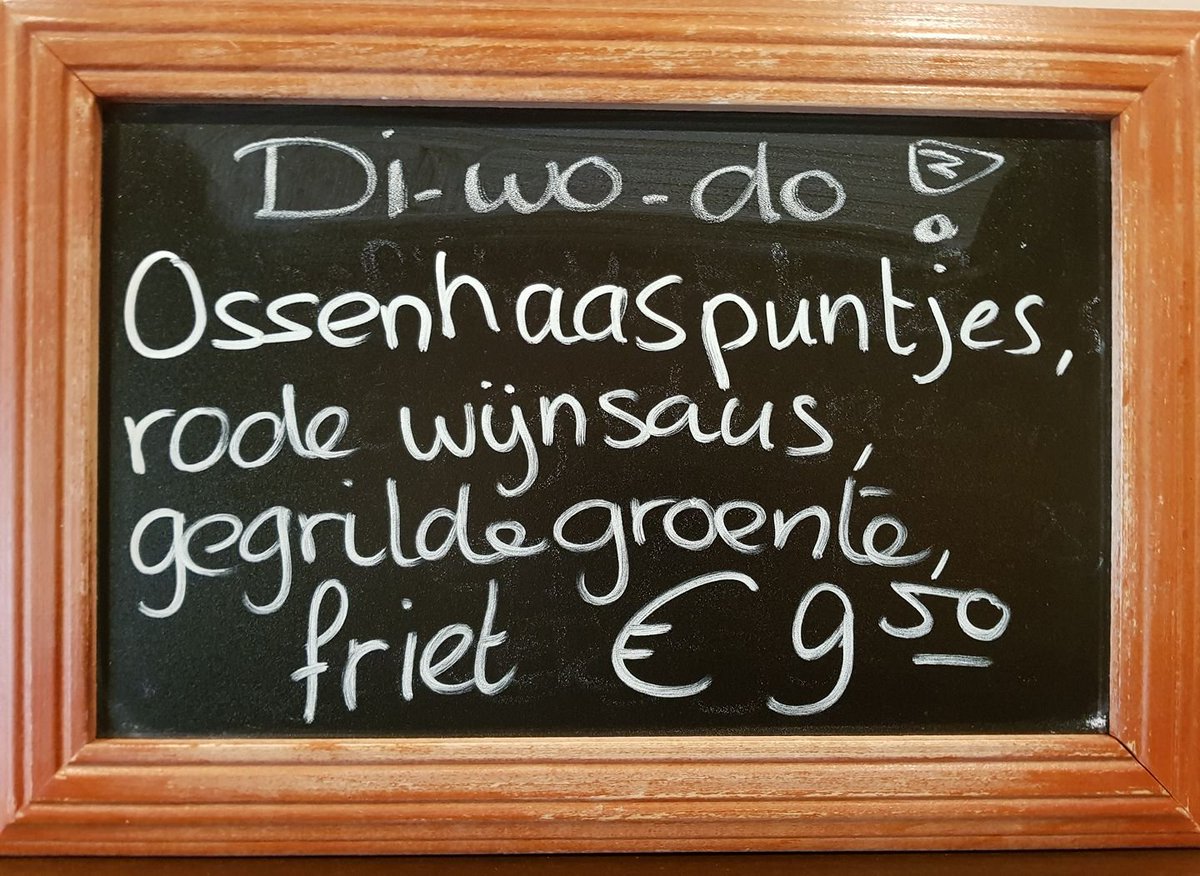 Di-wo-do!
Ossenhaaspuntjes,
rode wijnsaus,
gegrilde groente,
friet € 9 50